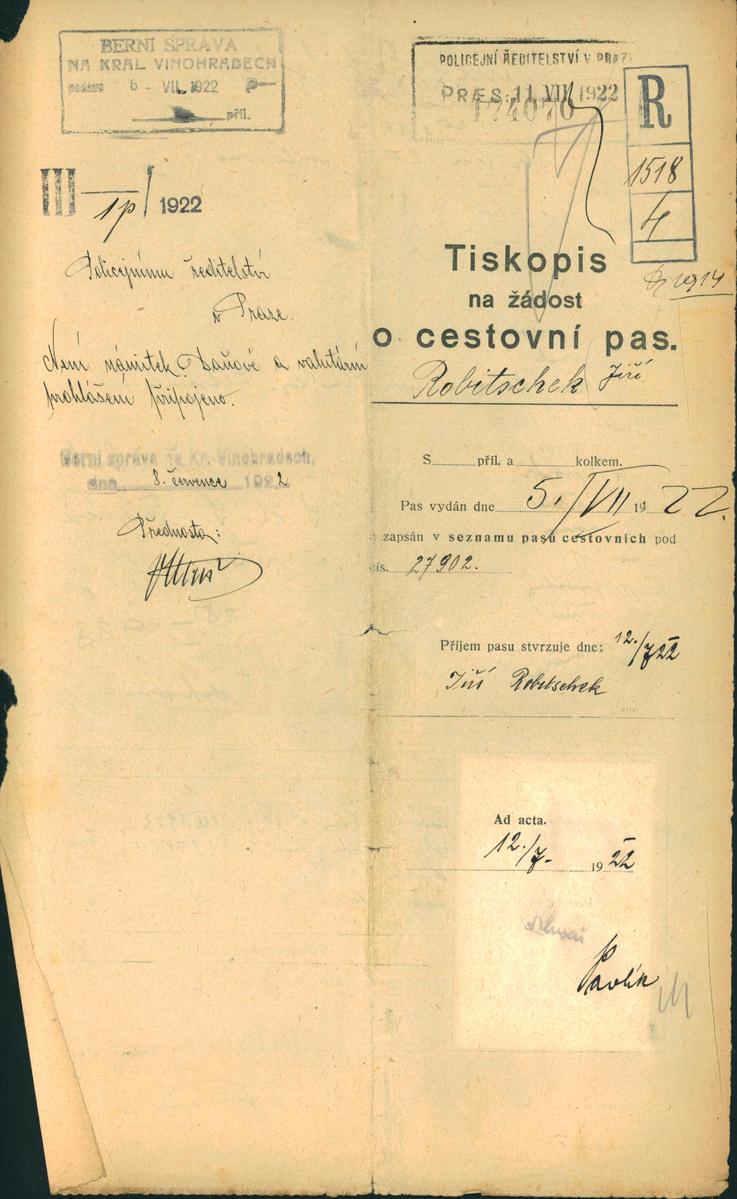 BERNÍ SPRÁVA
NA KRÁL VINOHRADECH
podáno 6 - VII. 1922
příl.
III 1p/ 1922
Policejnímu ředitelství
v Praze.
Není námitek. Daňové a valutární
prohlášení připojeno.
Berní správa na Kr. Vinohradech,
dne 8. července 1922
Přednosta:
POLICEJNÍ ŘEDITELSTVÍ V PRAZE
PRÆS. 11 VII 1922
174070
R
1518
4
Tiskopis
na žádost
o cestovní pas.
Robitschek Jiří
S příl. a kolkem.
Pas vydán dne 5./VII 1922.
a zapsán v seznamu pasů cestovních pod
čís. 27902.
Příjem pasu stvrzuje dne: 12./7 22
Jiří Robitschek
Ad acta.
12./7. 1922
Pavlík